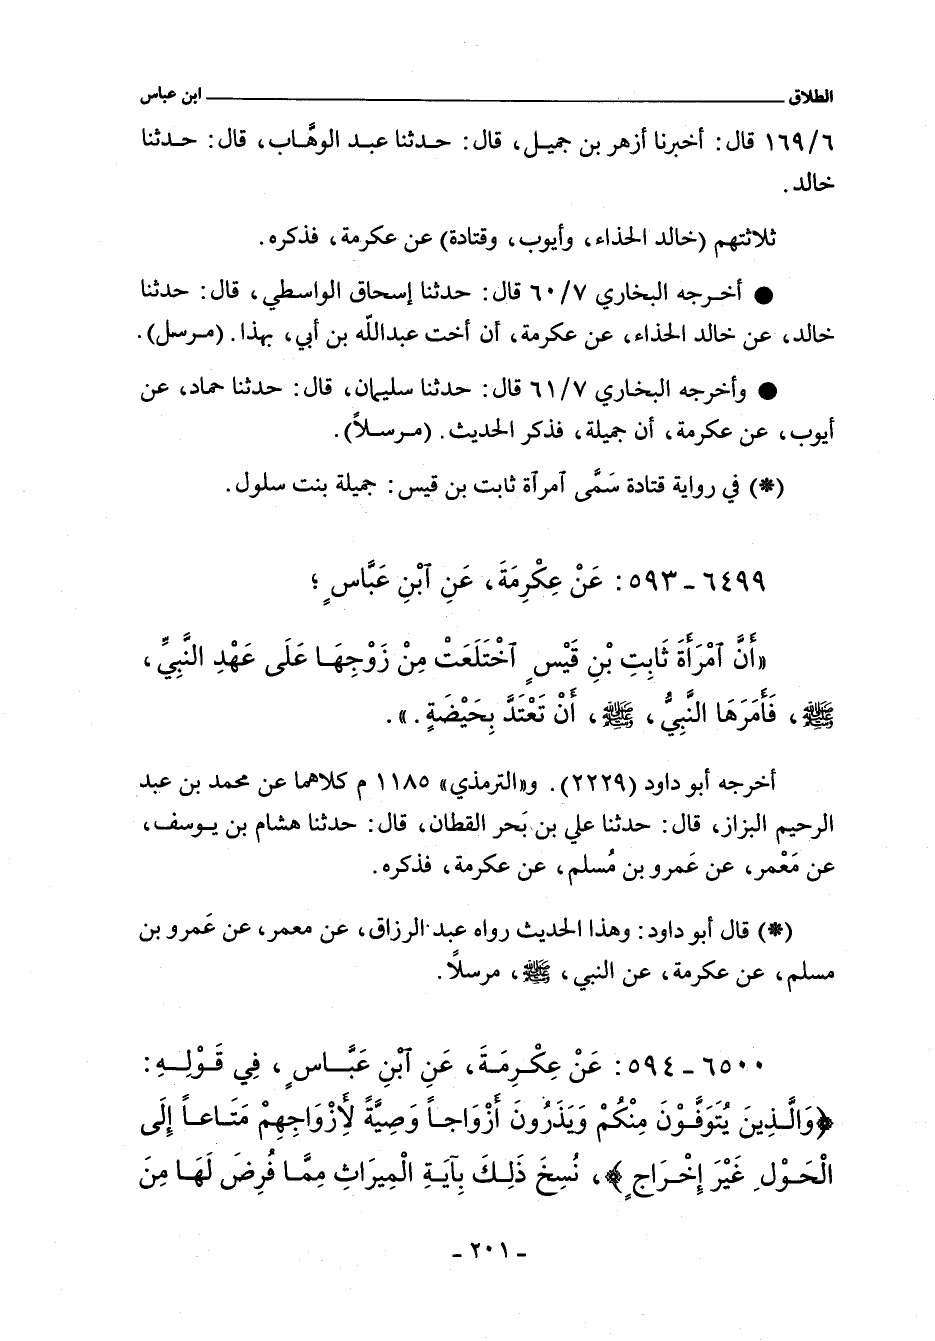 الطلاق ـــــــــــــــــــــــــــــــــــــــــــــــــــــــــــــــــ ابن عباس
١٦٩/٦ قال: أخبرنا أزهر بن جميل، قال: حدثنا عبد الوهَّاب، قال: حدثنا
خالد.
ثلاثتهم (خالد الحذاء، وأيوب، وقتادة) عن عكرمة، فذكره.
● أخرجه البخاري ٦٠/٧ قال: حدثنا إسحاق الواسطي، قال: حدثنا
خالد، عن خالد الحذاء، عن عكرمة، أن أخت عبدالله بن أبي، بهذا. (مرسل).
● وأخرجه البخاري ٦١/٧ قال: حدثنا سليمان، قال: حدثنا حماد، عن
أيوب، عن عكرمة، أن جميلة، فذكر الحديث. (مرسلاً).
(*) في رواية قتادة سَمَّى آمرأة ثابت بن قيس: جميلة بنت سلول.
٦٤٩٩ ـ ٥٩٣: عَنْ عِكْرِمَةَ، عَنِ ٱبْنِ عَبَّاسٍ؛
«أَنَّ ٱمْرَأَةَ ثَابِتِ بْنِ قَيْسٍ ٱخْتَلَعَتْ مِنْ زَوْجِهَا عَلَى عَهْدِ النَّبِيِّ،
ﷺ، فَأَمَرَهَا النَّبِيُّ، ﷺ، أَنْ تَعْتَدَّ بِحَيْضَةٍ.».
أخرجه أبو داود (٢٢٢٩). و«الترمذي» ١١٨٥ م كلاهما عن محمد بن عبد
الرحيم البزاز، قال: حدثنا علي بن بَحر القطان، قال: حدثنا هشام بن يوسف،
عن مَعْمر، عن عَمرو بن مُسلم، عن عكرمة، فذكره.
(*) قال أبو داود: وهذا الحديث رواه عبد الرزاق، عن معمر، عن عَمرو بن
مسلم، عن عكرمة، عن النبي، ﷺ، مرسلًا.
٦٥٠٠ ـ ٥٩٤: عَنْ عِكْرِمَةَ، عَنِ ٱبْنِ عَبَّاسٍ، فِي قَوْلِهِ:
﴿وَالَّذِينَ يُتَوَفَّوْنَ مِنْكُمْ وَيَذَرُونَ أَزْوَاجاً وَصِيَّةً لِأَزْوَاجِهِمْ مَتَاعاً إِلَى
الْحَوْلِ غَيْرَ إِخْرَاجٍ﴾، نُسِخَ ذَلِكَ بِآيَةِ الْمِيرَاثِ مِمَّا فُرِضَ لَهَا مِنَ
ـ ٢٠١ ـ